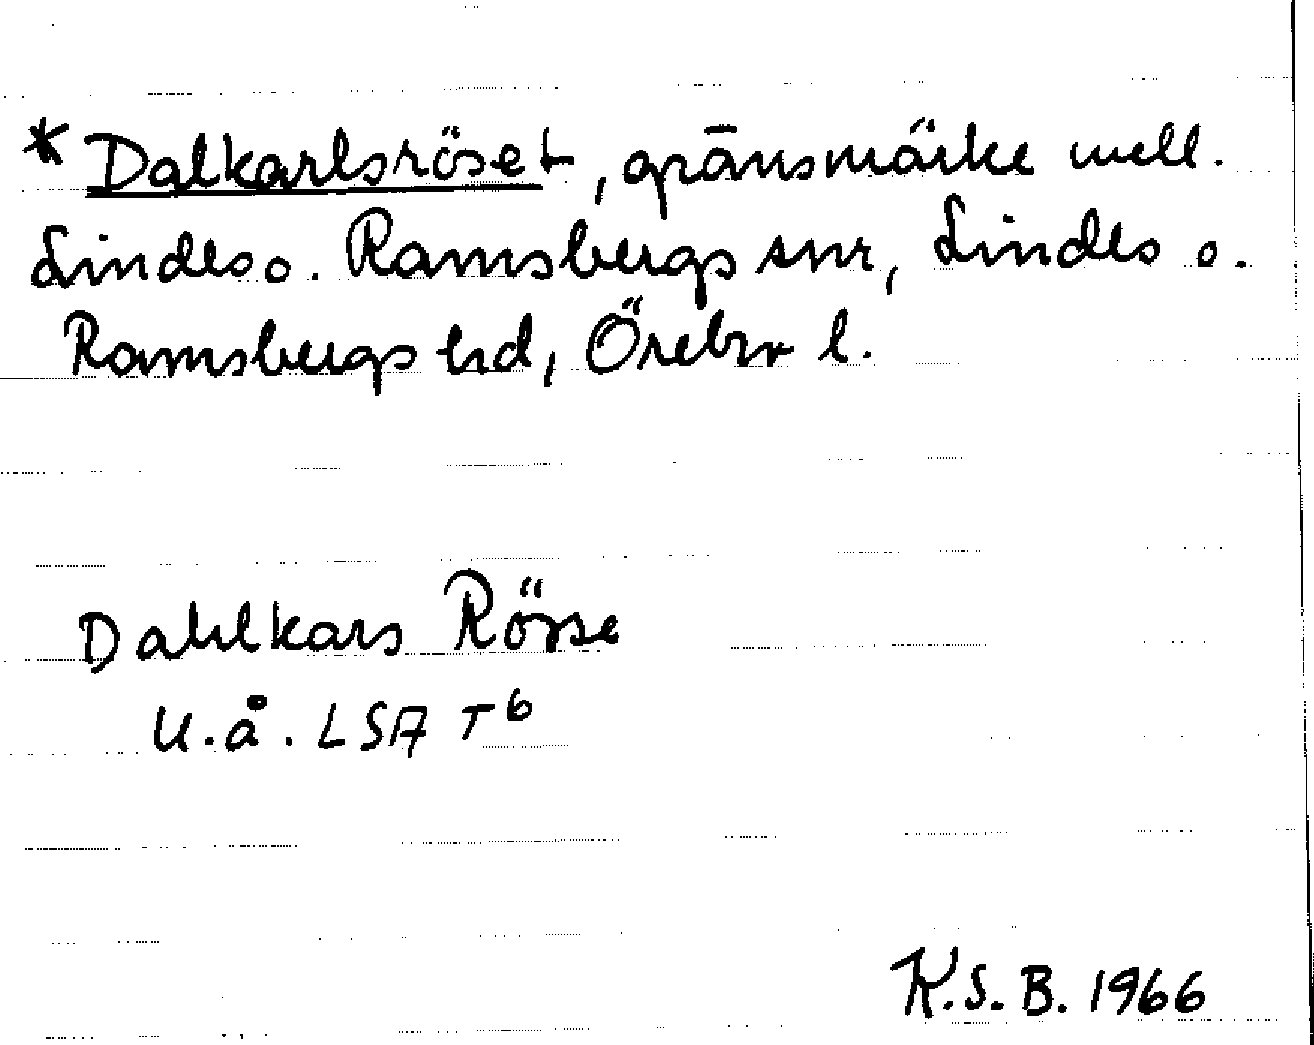 * Dalkarlsröset, gränsmärke mell.
Lindes o. Ramsbergs snr, Lindes o.
Ramsbergs hd, Örebro l.
Dahlkars Rösse
U.å. LSA T6
K.S.B. 1966